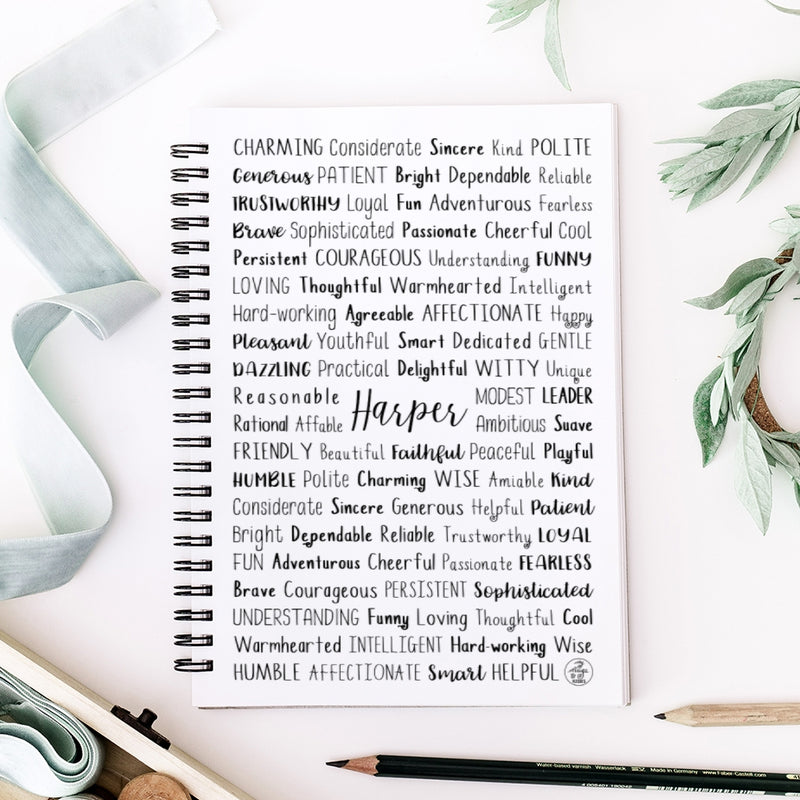 CHARMING Considerate Sincere Kind POLITE
Generous PATIENT Bright Dependable Reliable
TRUSTWORTHY Loyal Fun Adventurous Fearless
Brave Sophisticated Passionate Cheerful Cool
Persistent COURAGEOUS Understanding FUNNY
LOVING Thoughtful Warmhearted Intelligent
Hard-working Agreeable AFFECTIONATE Happy
Pleasant Youthful Smart Dedicated GENTLE
DAZZLING Practical Delightful WITTY Unique
Reasonable MODEST LEADER
Harper
Rational Affable Ambitious Suave
FRIENDLY Beautiful Faithful Peaceful Playful
HUMBLE Polite Charming WISE Amiable Kind
Considerate Sincere Generous Helpful Patient
Bright Dependable Reliable Trustworthy LOYAL
FUN Adventurous Cheerful Passionate FEARLESS
Brave Courageous PERSISTENT Sophisticated
UNDERSTANDING Funny Loving Thoughtful Cool
Warmhearted INTELLIGENT Hard-working Wise
HUMBLE AFFECTIONATE Smart HELPFUL
Water-based varnish Wasserlack Made in Germany www.Faber-Castell.com